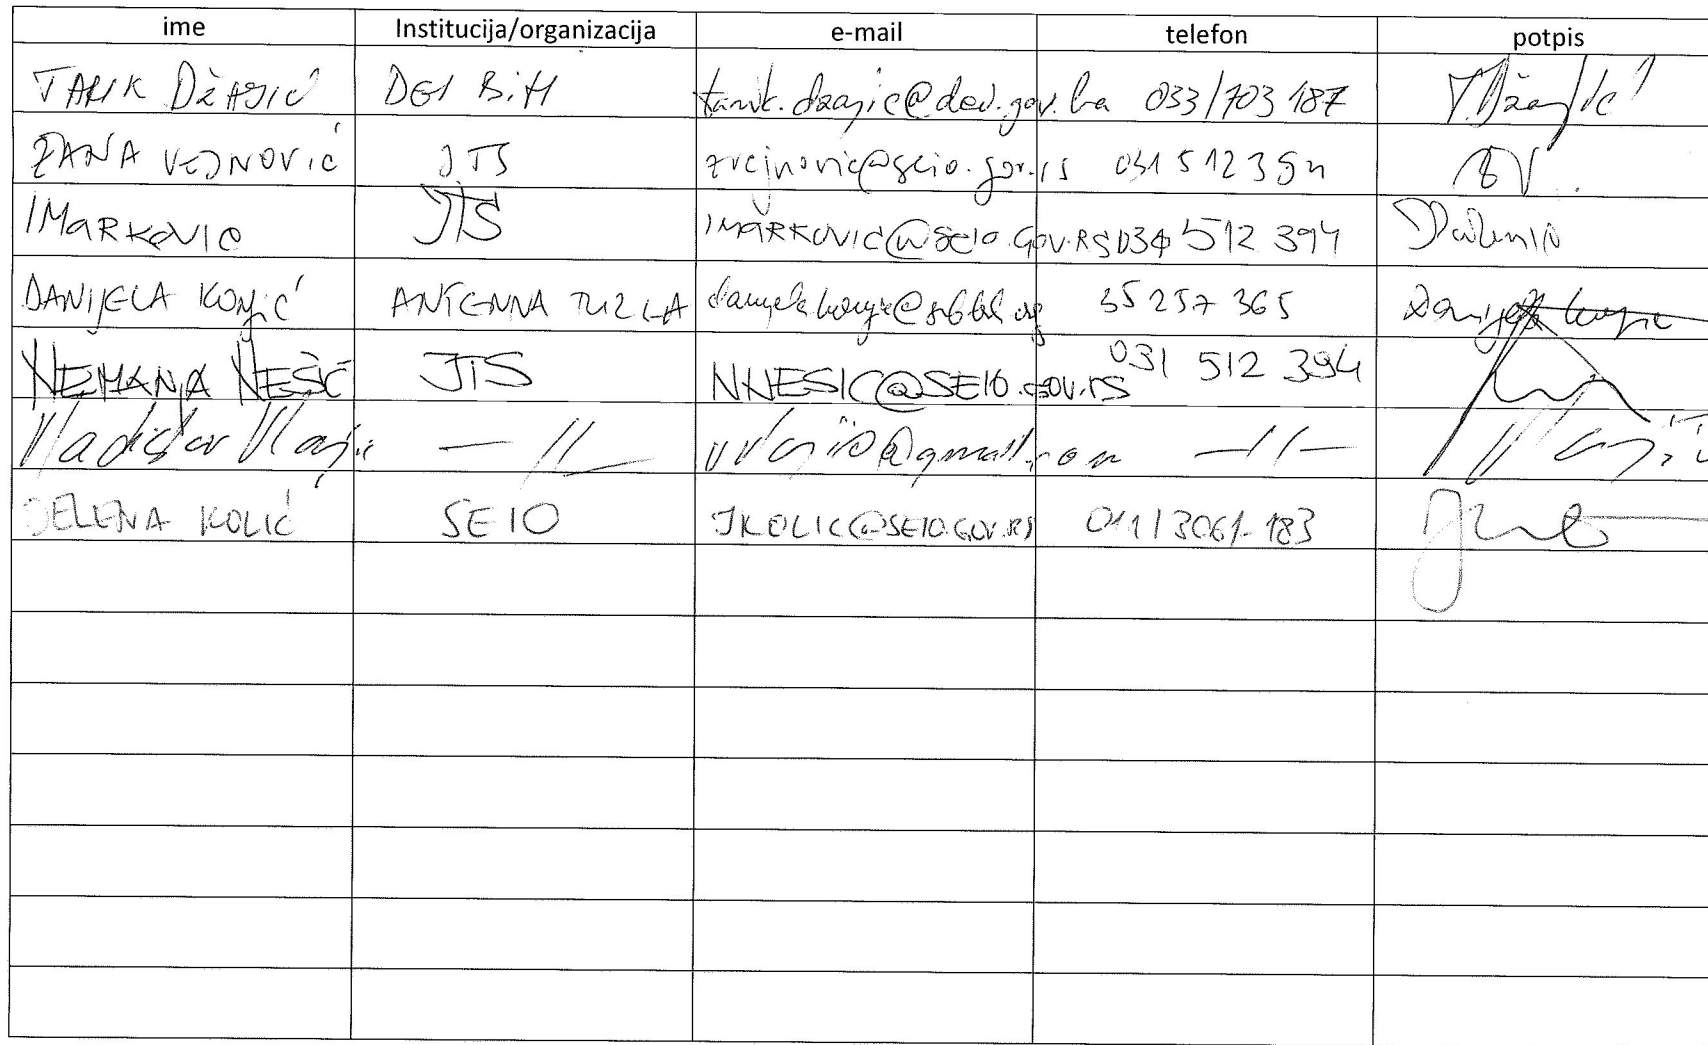 ime Institucija/organizacija e-mail telefon potpis
TARIK DŽAGIĆ DEI BiH tarik.dzagic@dei.gov.ba 033/703 187
ŽANA VEJNOVIĆ JTS zvejnovic@seio.gov.rs 031 512 394
IMARKOVIC JTS IMARKOVIC@SEIO.GOV.RS 512 394
DANIJELA KONJIĆ ANTENNA TUZLA 35 257 365
NEMANJA NEŠIĆ JTS NNESIC@SEIO.GOV.RS 031 512 394
Vladislav Vlajic — // — —//—
JELENA KOLIĆ SEIO JKOLIC@SEIO.GOV.RS 011/3061-183